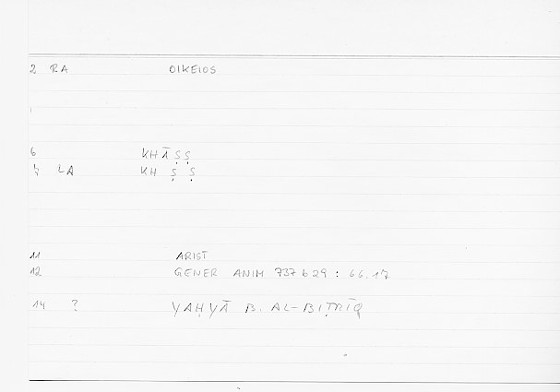 2 RA OIKEIOS
6 KHĀṢṢ
LA KH ṢṢ
11 ARIST
12 GENER ANIM 737 b 29 : 66.17
14 ? YAḤYĀ B. AL-BIṬRĪQ